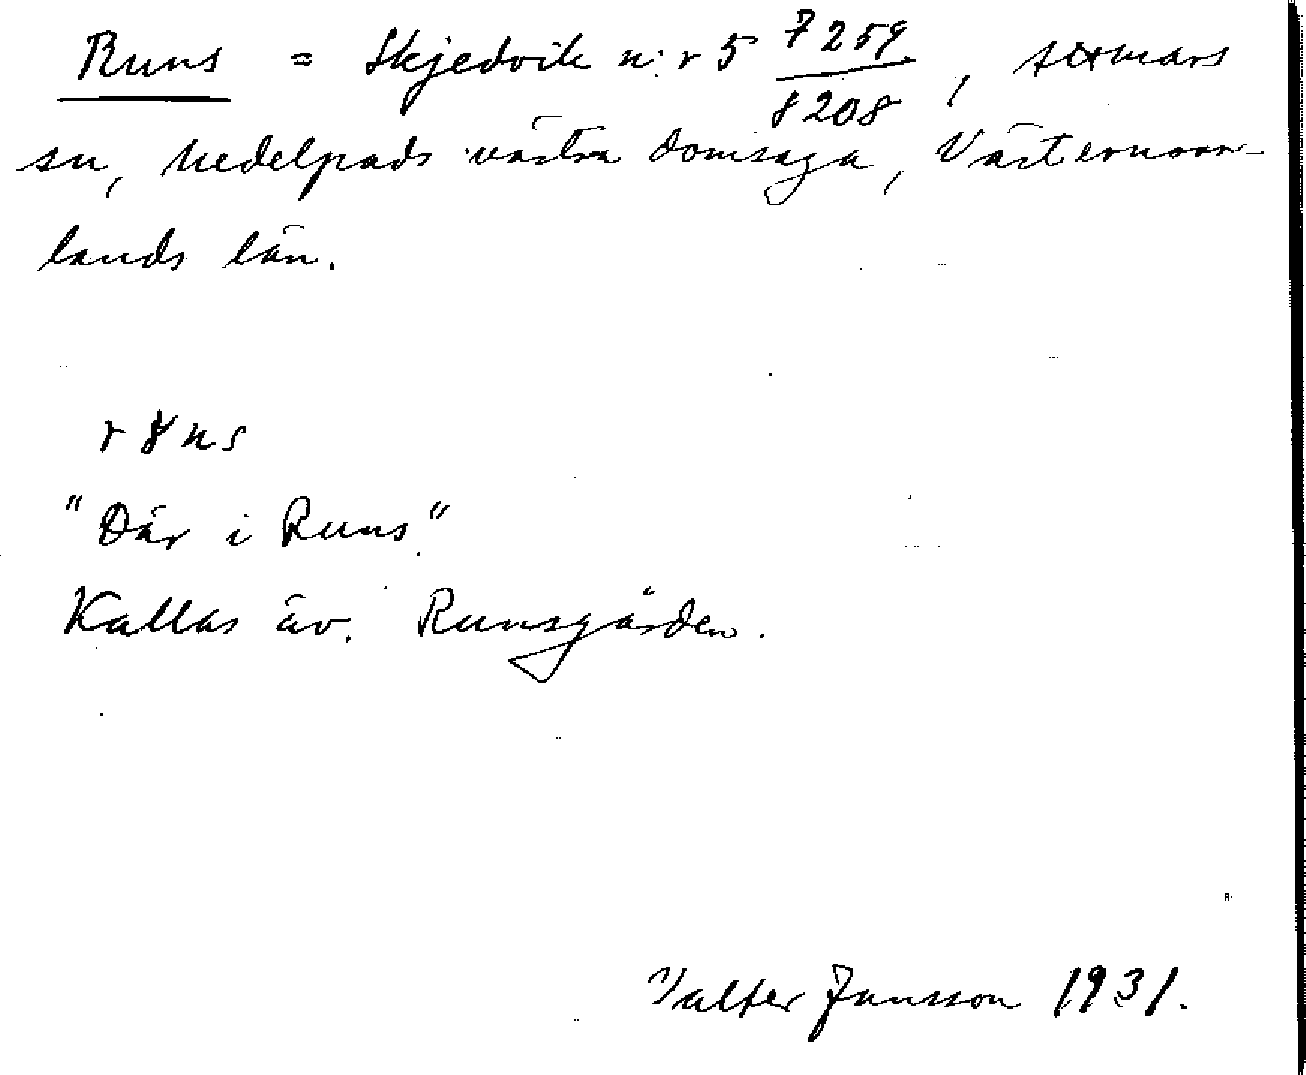 Runs = Skjedvik n:r 5 7259/8208, Attmars
sn, Medelpads västra domsaga, Västernorr-
lands län.
"Där i Runs".
Kallas äv. Runsgården.
Valter Jansson 1931.